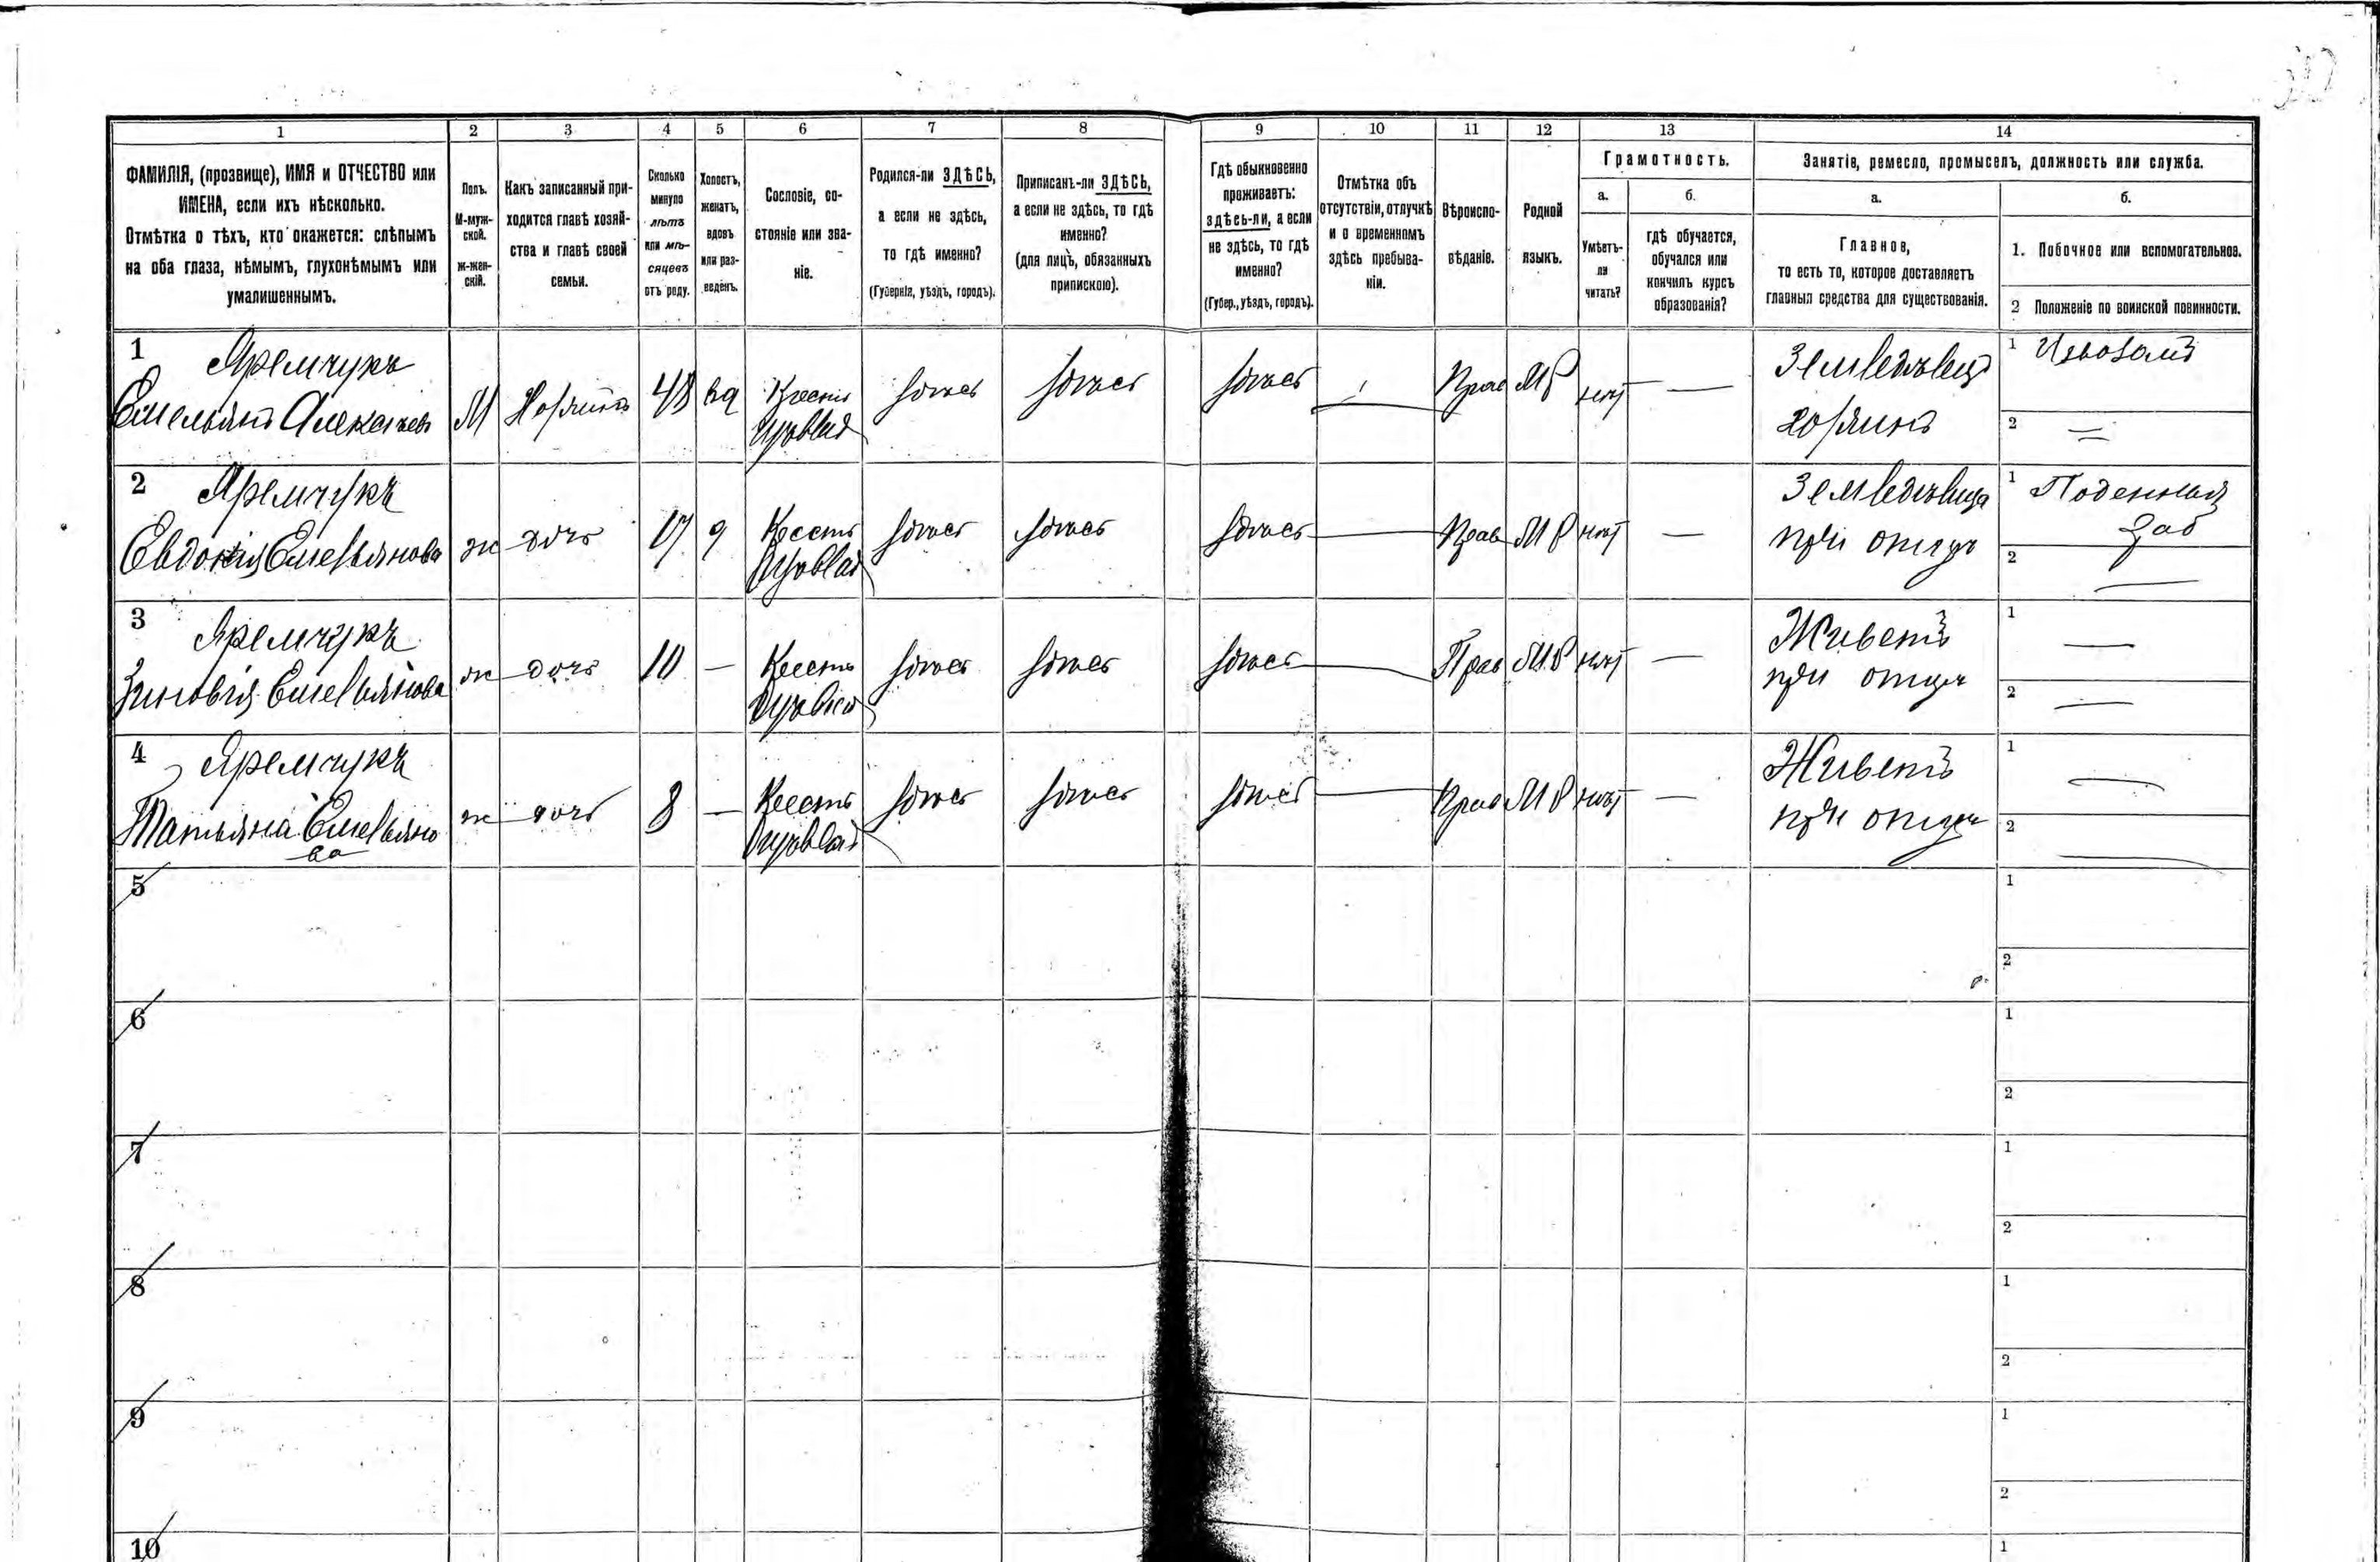 1 2 3 4 5 6 7 8 9 10 11 12 13 14
ФАМИЛІЯ, (прозвище), ИМЯ и ОТЧЕСТВО или
ИМЕНА, если ихъ нѣсколько.
Отмѣтка о тѣхъ, кто окажется: слѣпымъ
на оба глаза, нѣмымъ, глухонѣмымъ или
умалишеннымъ.
Полъ.
М-муж-
ской.
ж-жен-
скій.
Какъ записанный при-
ходится главѣ хозяй-
ства и главѣ своей
семьи.
Сколько
минуло
лѣтъ
или мѣ-
сяцевъ
отъ роду.
Холостъ,
женатъ,
вдовъ
или раз-
веденъ.
Сословіе, со-
стояніе или зва-
ніе.
Родился-ли ЗДѢСЬ,
а если не здѣсь,
то гдѣ именно?
(Губернія, уѣздъ, городъ).
Приписанъ-ли ЗДѢСЬ,
а если не здѣсь, то гдѣ
именно?
(для лицъ, обязанныхъ
припискою).
Гдѣ обыкновенно
проживаетъ:
здѣсь-ли, а если
не здѣсь, то гдѣ
именно?
(Губер., уѣздъ, городъ).
Отмѣтка объ
отсутствіи, отлучкѣ
и о временномъ
здѣсь пребыва-
ніи.
Вѣроиспо-
вѣданіе.
Родной
языкъ.
Грамотность.
а.
Умѣетъ-
ли
читать?
б.
гдѣ обучается,
обучался или
кончилъ курсъ
образованія?
Занятіе, ремесло, промыселъ, должность или служба.
а.
Главное,
то есть то, которое доставляетъ
главныя средства для существованія.
б.
1. Побочное или вспомогательное.
2 Положеніе по воинской повинности.
1 Яремчукъ
Емельянъ Алексѣевъ М Хозяинъ 48 вд Крестъ здѣсь здѣсь здѣсь Прав МР нѣт
хозяинъ
1
2
2 Яремчукъ
Евдокія Емельянова ж дочь 17 д Крестъ здѣсь здѣсь здѣсь — Прав МР нѣт —
при отцѣ
1 Поденная
2
3 Яремчукъ
Зиновія Емельянова ж дочь 10 — Крестъ здѣсь здѣсь здѣсь — Прав МР нѣт —
Живетъ
при отцѣ
1 —
2 —
4 Яремчукъ
Татьяна Емельяно
ва
ж дочь 8 — Крестъ здѣсь здѣсь здѣсь — Прав МР нѣт —
Живетъ
при отцѣ
1 —
2 —
5 1
2
6 1
2
7 1
2
8 1
2
9 1
2
10 1